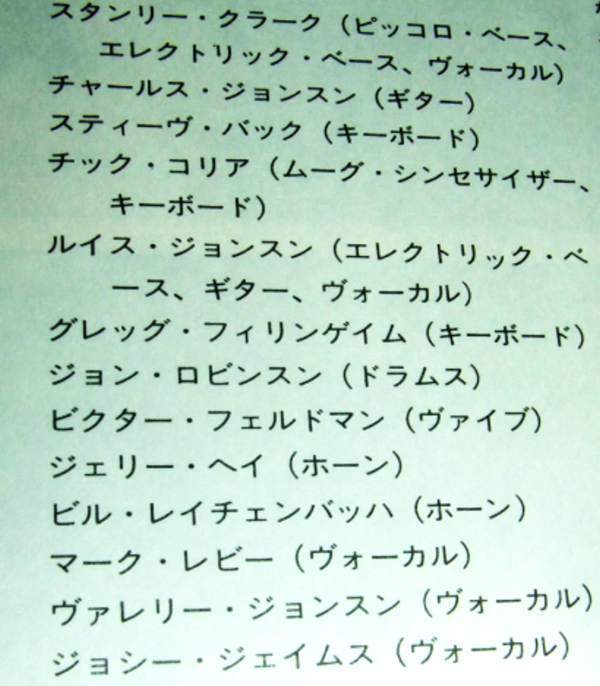 スタンリー・クラーク（ピッコロ・ベース、
エレクトリック・ベース、ヴォーカル）
チャールス・ジョンスン（ギター）
スティーヴ・バック（キーボード）
チック・コリア（ムーグ・シンセサイザー、
キーボード）
ルイス・ジョンスン（エレクトリック・ベ
ース、ギター、ヴォーカル）
グレッグ・フィリンゲイム（キーボード）
ジョン・ロビンスン（ドラムス）
ビクター・フェルドマン（ヴァイブ）
ジェリー・ヘイ（ホーン）
ビル・レイチェンバッハ（ホーン）
マーク・レビー（ヴォーカル）
ヴァレリー・ジョンスン（ヴォーカル）
ジョシー・ジェイムス（ヴォーカル）